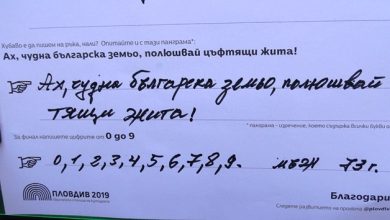 Хубаво е да пишем на ръка, нали? Опитайте и с тази панграма*:
Ах, чудна българска земьо, полюшвай цъфтящи жита!
Ах, чудна българска земьо, полюшвай
тящи жита!
* панграма - изречение, което съдържа всички букви о
За финал напишете цифрите от 0 до 9
0, 1, 2, 3, 4, 5, 6, 7, 8, 9. мъж 73 г.
ПЛОВДИВ 2019
Благодари
Следете развитието на проекта